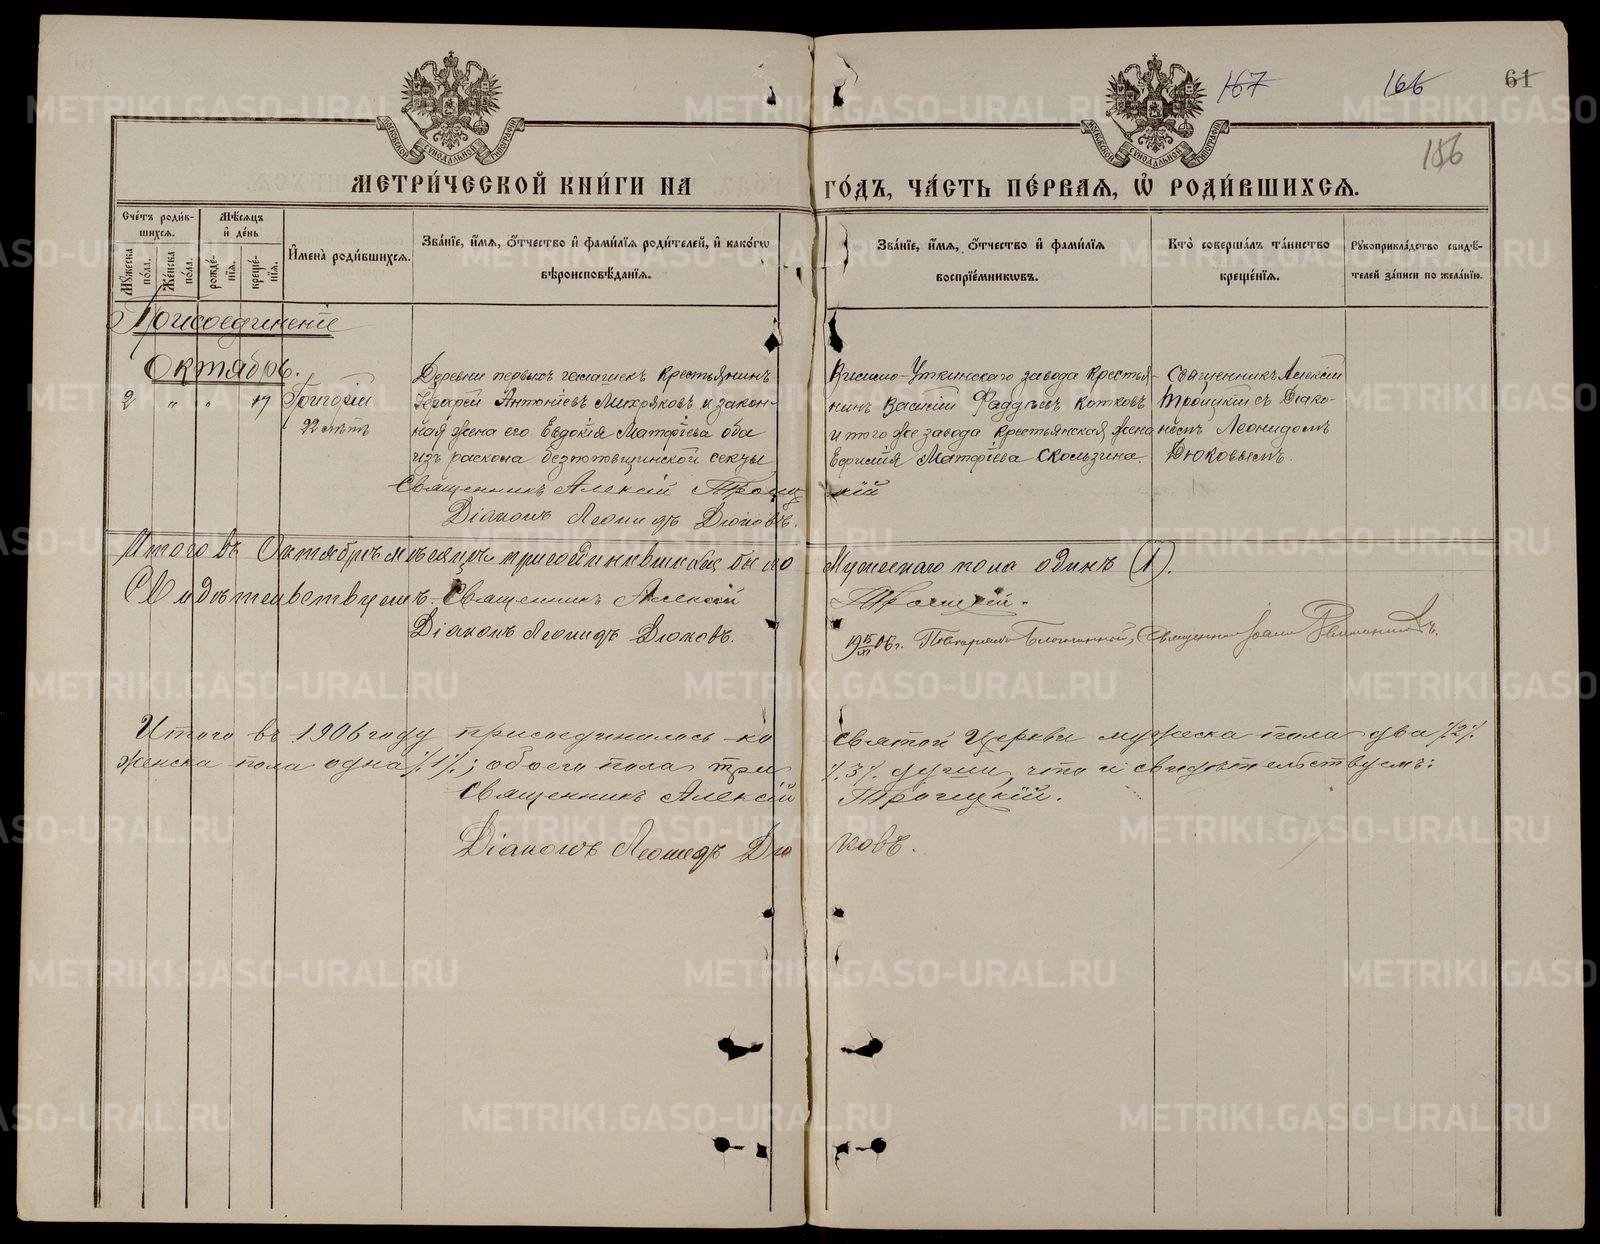 167
166
61
156
МОСКОВСКОЙ СѴНОДАЛЬНОЙ ТИПОГРАФІИ
МОСКОВСКОЙ СѴНОДАЛЬНОЙ ТИПОГРАФІИ
МЕТРИ́ЧЕСКОЙ КНИ́ГИ НА
ГО́ДЪ, ЧА́СТЬ ПЕ́РВАЯ, Ѡ҆ РОДИ́ВШИХСЯ.
Сче́тъ роди́в-
шихся.
Мѣ́сяцъ
и҆ де́нь
Мꙋ́жеска
по́ла.
Же́нска
по́ла.
рожде́-
нїя.
креще́-
нїя.
И҆мена̀ роди́вшихся.
Зва́нїе, и҆́мя, ѻ҆́тчество и҆ фами́лїя роди́телей, и҆ како́гѡ
вѣроисповѣ́данїя.
Зва́нїе, и҆́мя, ѻ҆́тчество и҆ фами́лїя
воспрїе́мникѡвъ.
Кто̀ соверша́лъ та́инство
креще́нїя.
Рꙋкоприкла́дство свидѣ́-
телей за́писи по жела́нїю.
Присоединеніе
Октябрь.
2 " " 17 Григорій
22 лѣтъ
Деревни первыхъ крестьянинъ
Антоніевъ Мехряковъ и закон-
ная жена его Евдокія Матфіева оба
изъ раскола безпоповщинской секты
Священникъ Алексій Троиц
Діаконъ Леонидъ Дюковъ.
Висимо-Уткинскаго завода крестья-
нинъ Василій Фаддѣевъ Котковъ
и того же завода крестьянская жена
Матфіева Скользина.
кій
Священникъ Алексій
Троицкій съ Діако-
номъ Леонидомъ
Дюковымъ.
Итого въ Октябрѣ мѣсяцѣ присоединившихся было
Мужескаго пола одинъ (1).
Свидѣтельствуемъ. Священникъ Алексій
Троицкій.
Діаконъ Леонидъ Дюковъ.
Благочинный, Священникъ Іоаннъ
Итого въ 1906 году присоединилось ко
святой Церкви мужеска пола два /.2/.
женска пола одна /.1/.; обоего пола три
/.3/. души, что и свидѣтельствуемъ:
Священникъ Алексій
Троицкій.
Діаконъ Леонидъ Дю
ковъ.
METRIKI.GASO-URAL.RU